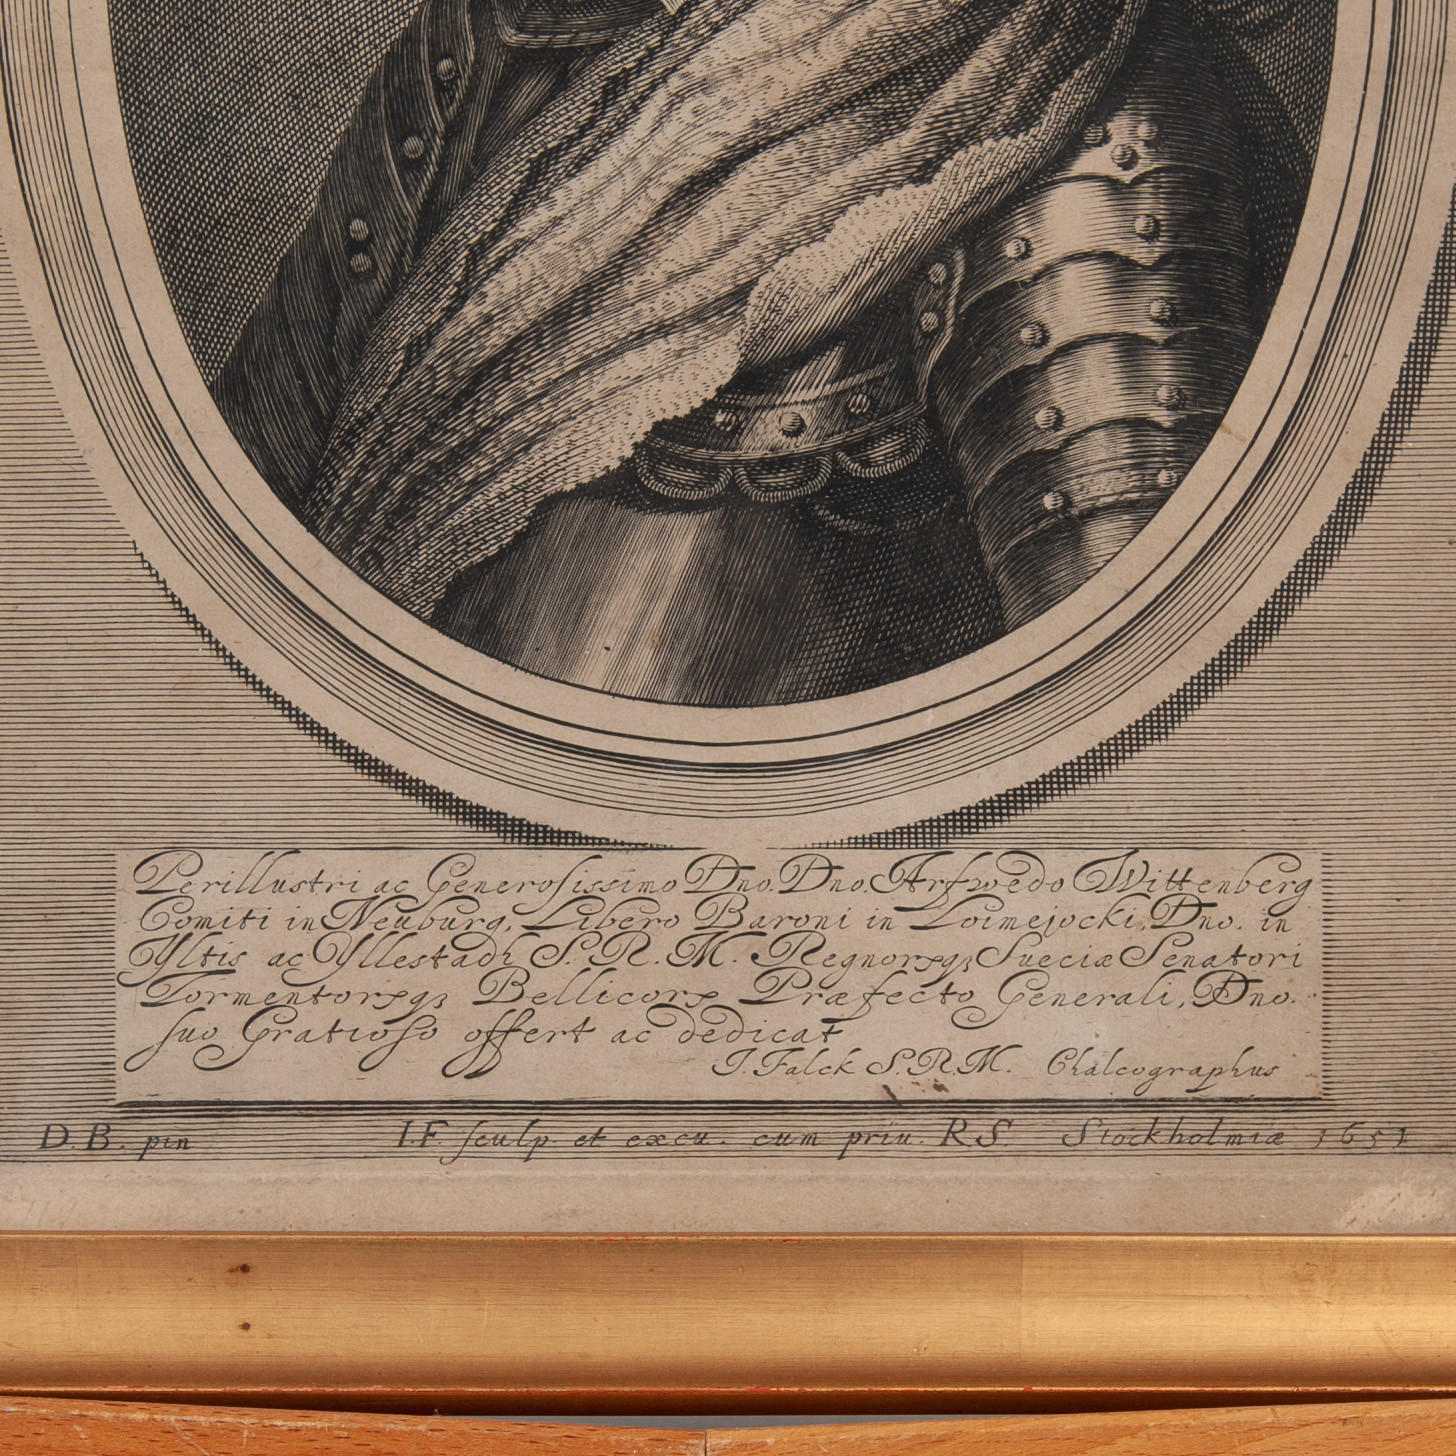 Perillustri ac Generosissimo Dno. Dno. Arfwedo Wittenberg
Comiti in Neuburg, Libero Baroni in Loimejocki, Dno. in
Yltis ac Yllestadh S. R. M. Regnorꝝqꝫ Sueciæ Senatori
Tormentorꝝqꝫ Bellicorꝝ Præfecto Generali, Dno.
suo Gratioso offert ac dedicat
I. Falck S. R. M. Chalcographus
D. B. pin I. F. sculp. et excu. cum priu. R. S. Stockholmiæ 1651